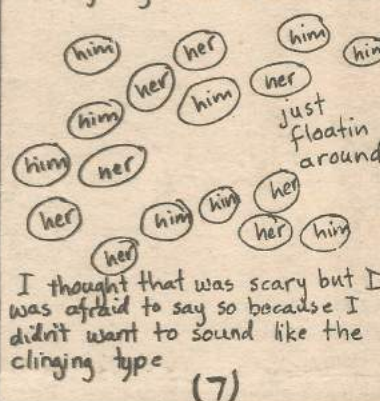 him her him him
her her
him him
just
floatin
around
him her
her
her him him
her him
her
I thought that was scary but I
was afraid to say so because I
didn't want to sound like the
clinging type
(7)